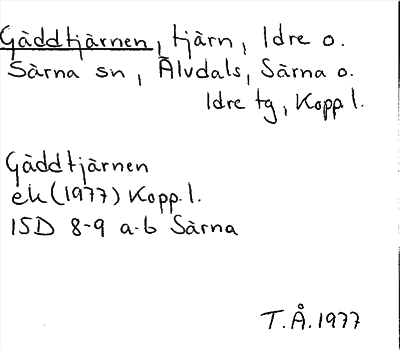 Gäddtjärnen, tjärn, Idre o.
Särna sn, Älvdals, Särna o.
Idre tg, Kopp. l.
Gäddtjärnen
ek (1977) Kopp. l.
15D 8-9 a-b Särna
T.Å. 1977